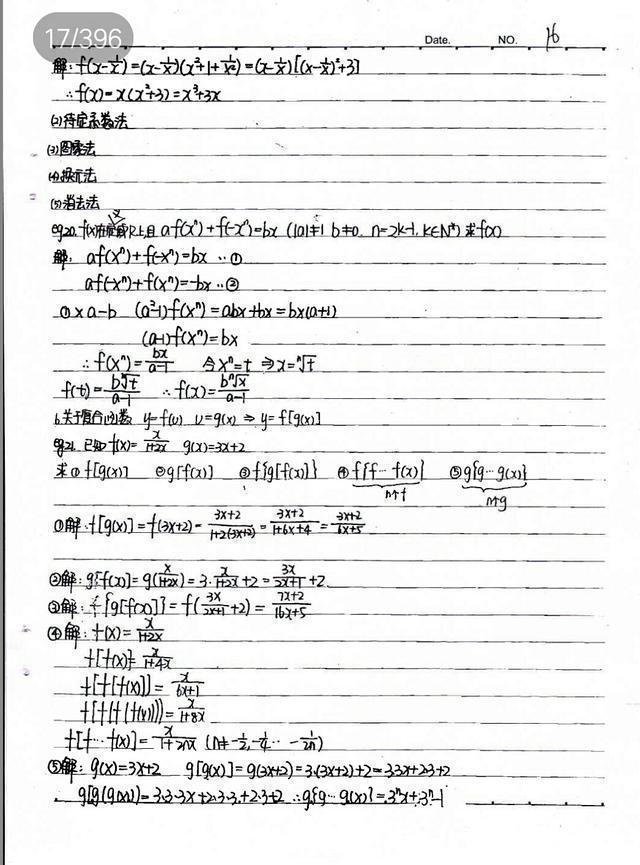 17/396
Date. NO. 16
解: f(x-1/x)=(x-1/x)(x²+1+1/x²)=(x-1/x)[(x-1/x)²+3]
∴f(x)=x(x²+3)=x³+3x
(2)待定系数法
(3)图象法
(4)换元法
(5)消去法
eg20. f(x) R上且 af(xⁿ)+f(-xⁿ)=bx (|a|≠1 b≠0. n=2k-1, k∈N*) 求f(x)
解: af(xⁿ)+f(-xⁿ)=bx ..①
af(-xⁿ)+f(xⁿ)=-bx ..②
①×a-b (a²-1)f(xⁿ)=abx+bx=bx(a+1)
(a-1)f(xⁿ)=bx
∴f(xⁿ)=bx/(a-1) 令xⁿ=t ⇒x=ⁿ√t
f(t)=bⁿ√t/(a-1) ∴f(x)=bⁿ√x/(a-1)
6.关于复合函数 y=f(u) u=g(x) ⇒ y=f[g(x)]
eg21. 已知f(x)=x/(1+2x) g(x)=3x+2
求①f[g(x)] ②g[f(x)] ③f{g[f(x)]} ④f{f…f(x)} ⑤g{g…g(x)}
n个f n个g
①解: f[g(x)]=f(3x+2)=(3x+2)/(1+2(3x+2))=(3x+2)/(1+6x+4)=(3x+2)/(6x+5)
②解: g[f(x)]=g(x/(1+2x))=3·x/(1+2x)+2=3x/(2x+1)+2
③解: f{g[f(x)]}=f(3x/(2x+1)+2)=(7x+2)/(16x+5)
④解: f(x)=x/(1+2x)
f[f(x)]=x/(1+4x)
f[f[f(x)]]=x/(6x+1)
f[f[f(f(x))]]=x/(1+8x)
f[f…f(x)]=x/(1+2nx) (n≠-1/2,-1/4…-1/2n)
⑤解: g(x)=3x+2 g[g(x)]=g(3x+2)=3·(3x+2)+2=3·3x+2·3+2
g[g(g(x))]=3·3·3x+2·3·3+2·3+2 ∴g{g…g(x)}=3ⁿx+3ⁿ-1